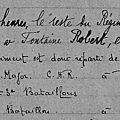 le reste du Régim
à Fontaine Robert, l
ment et donc réparti de
Major. C.H.R. à
3e Bataillons
Bataillon à